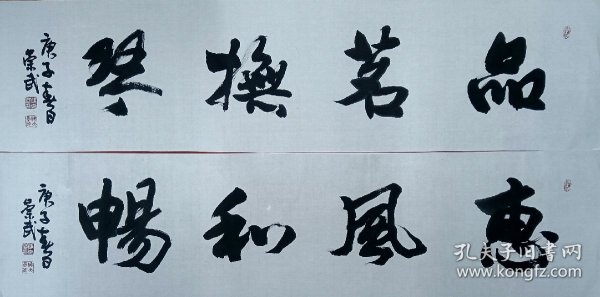 品茗撫琴
庚子春日
榮武
惠風和暢
庚子春日
榮武
孔夫子旧书网
www.kongfz.com